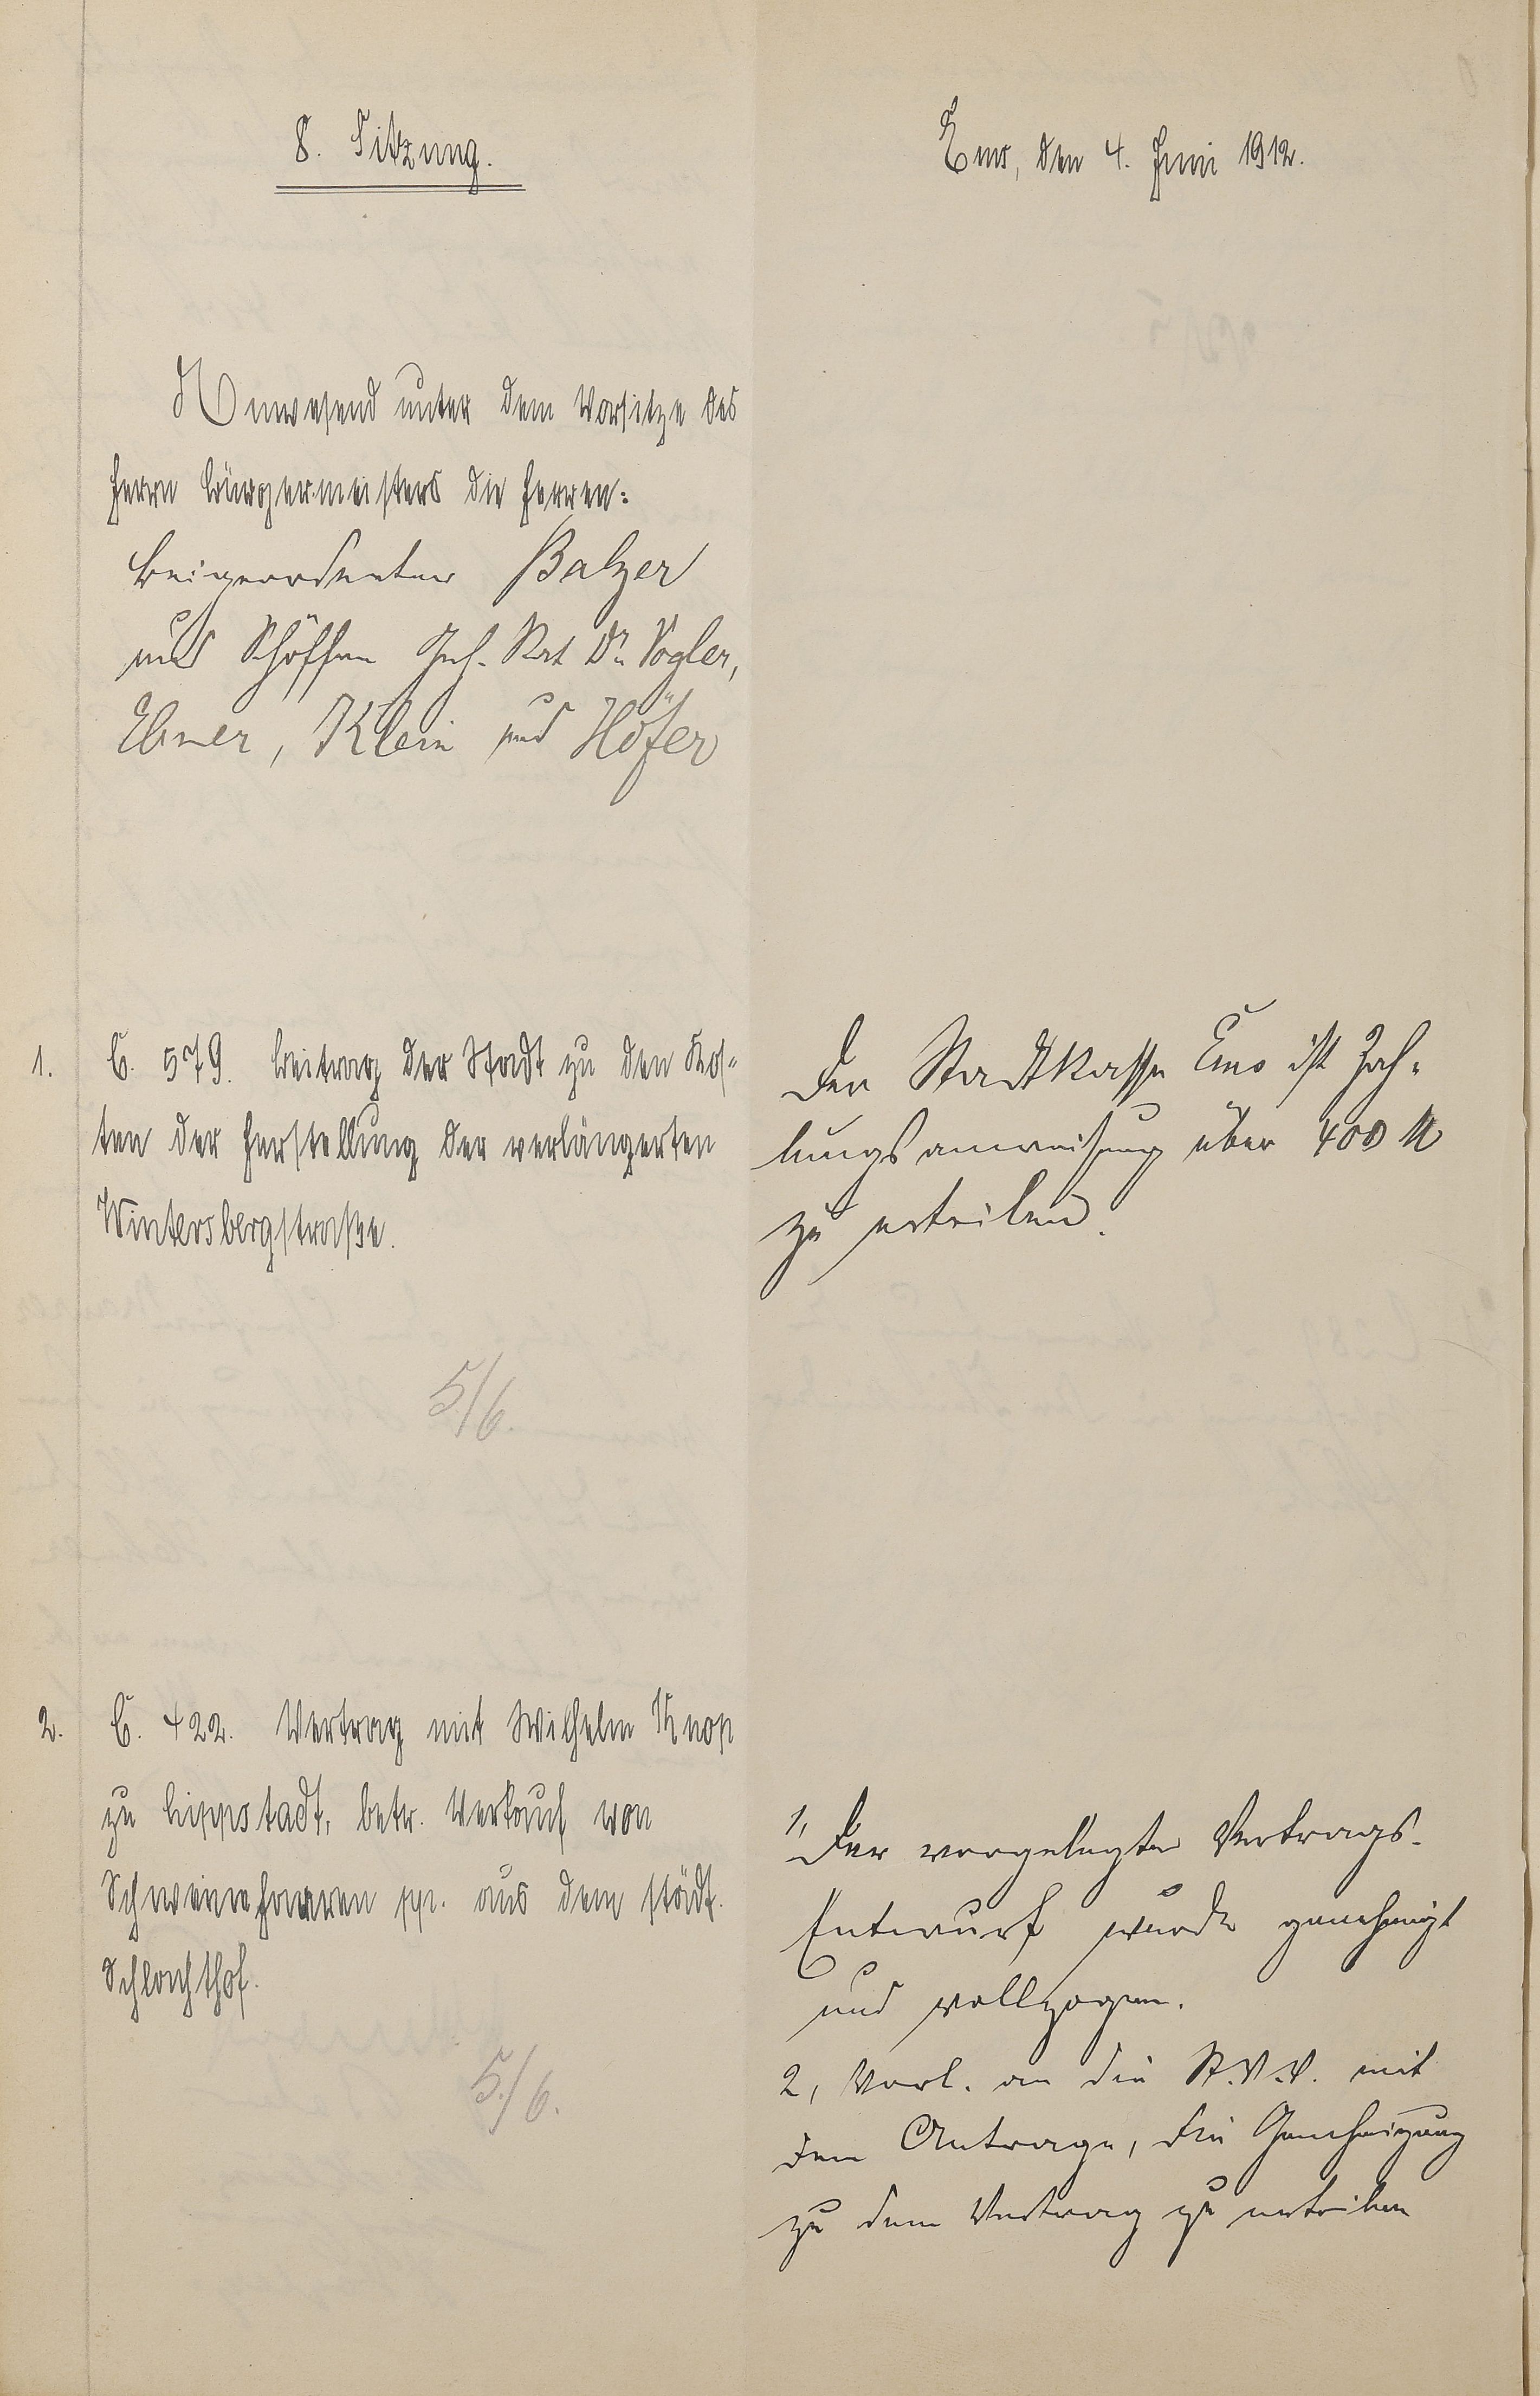 8. Sitzung.
Ems, den 4. Juni 1912.
Anwesend unter dem Vorsitze des
Herrn Bürgermeisters die Herren:
Beigeordneter Balzer
und Schöffen Geh. Rat Dr. Vogler,
Ebner, Klein und Höfer
1. C. 579. Beitrag der Stadt zu den Kos-
ten der Herstellung der verlängerten
Wintersbergstraße.
5/6.
Der Stadtkasse Ems ist Zah-
lungsanweisung über 400 M
zu erteilen.
2. C. 422. Vertrag mit Wilhelm Knop
zu Lippstadt, betr. Verkauf von
Schweinehaaren pp. aus dem städt.
Schlachthof.
5./6.
1, Der vorgelegte Vertrags-
Entwurf wurde genehmigt
und vollzogen.
2, Vorl. an die St.V.V. mit
dem Antrage, die Genehmigung
zu dem Vertrag zu erteilen